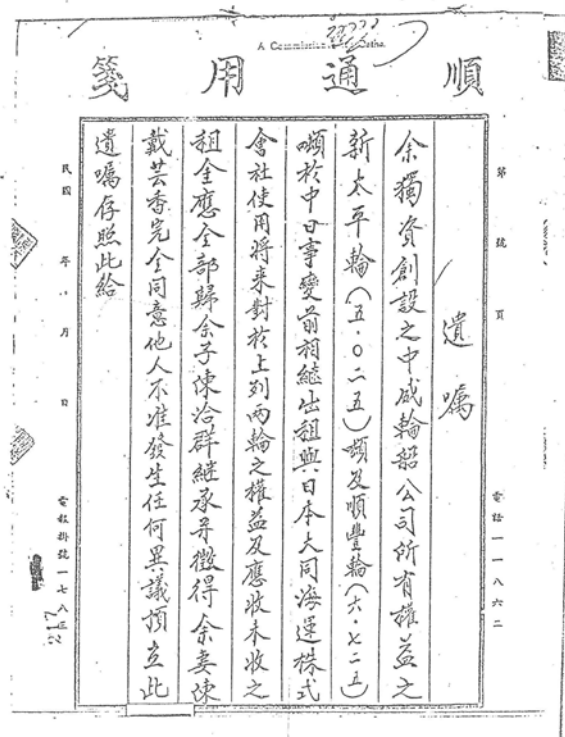 順通用箋
第 號 頁
電話一一八六二
遺囑
余獨資創設之中威輪船公司所有權益之
新太平輪(五·〇二五)噸及順豐輪(六·七二五)
噸於中日事變前相繼出租與日本大同海運株式
會社使用將來對於上列兩輪之權益及應收未收之
租金應全部歸余子陳洽群繼承并徵得余妻陳
戴芸香完全同意他人不准發生任何異議預立此
遺囑存照此給
民國 年 月 日
電報掛號一七八三